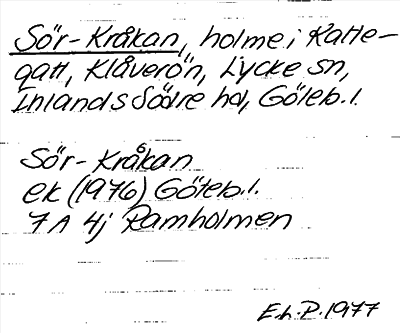 Sör-Kråkan, holme i Katte-
gatt, Klåverön, Lycke sn,
Inlands Södre hd, Göteb.l.
Sör-Kråkan
ek (1976) Göteb.l.
7A 4j Ramholmen
E.h.P. 1977